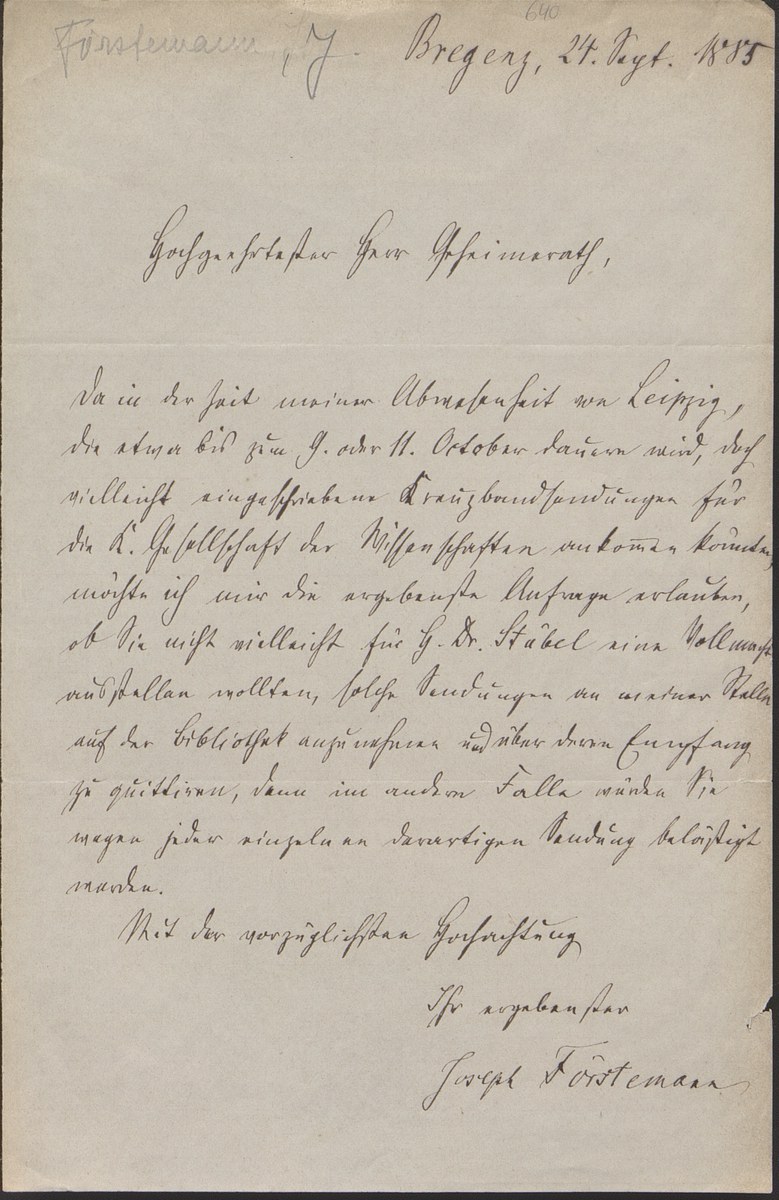 640
Förstemann, J. Bregenz, 24. Sept. 1885
Hochgeehrtester Herr Geheimerath,
Da in der Zeit meiner Abwesenheit von Leipzig,
die etwa bis zum 9. oder 11. October dauern wird, doch
vielleicht eingeschriebene Kreuzbandsendungen für
die K. Gesellschaft der Wissenschaften ankom̄en könnten,
möchte ich mir die ergebenste Anfrage erlauben,
ob Sie nicht vielleicht für H. Dr. Stübel eine Vollmacht
ausstellen wollten, solche Sendungen an meiner Stelle
auf der Bibliothek anzunehmen und über deren Empfang
zu quittiren, denn im andern Falle würden Sie
wegen jeder einzelnen derartigen Sendung belästigt
werden.
Mit der vorzüglichsten Hochachtung
Ihr ergebenster
Joseph Förstemann